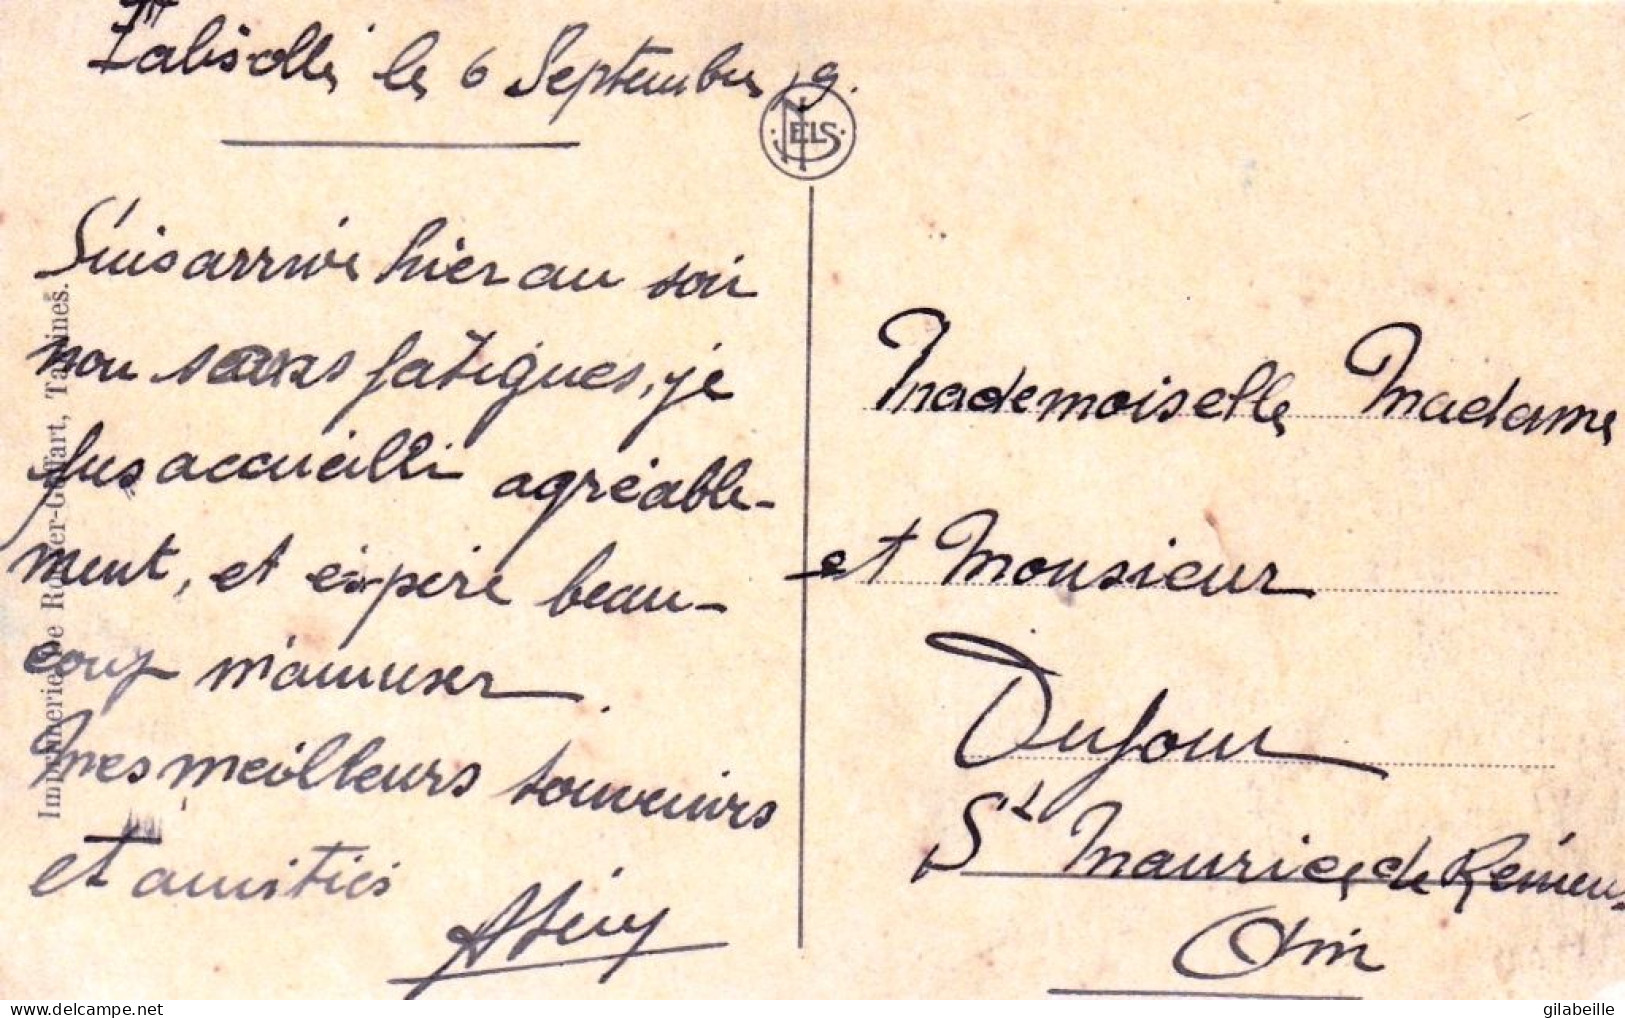 le 6 Septembre 19.
NELS
Suis arrivé hier au soir
non sans fatigues, je
fus accueilli agréable-
ment, et éspère beau-
coup m'amuser.
Mes meilleurs souvenirs
et amitiés
Imprimerie De Tamines.
Mademoiselle Madame
et Monsieur
Dufour
St Maurice de Rémens
Ain
gilabeille